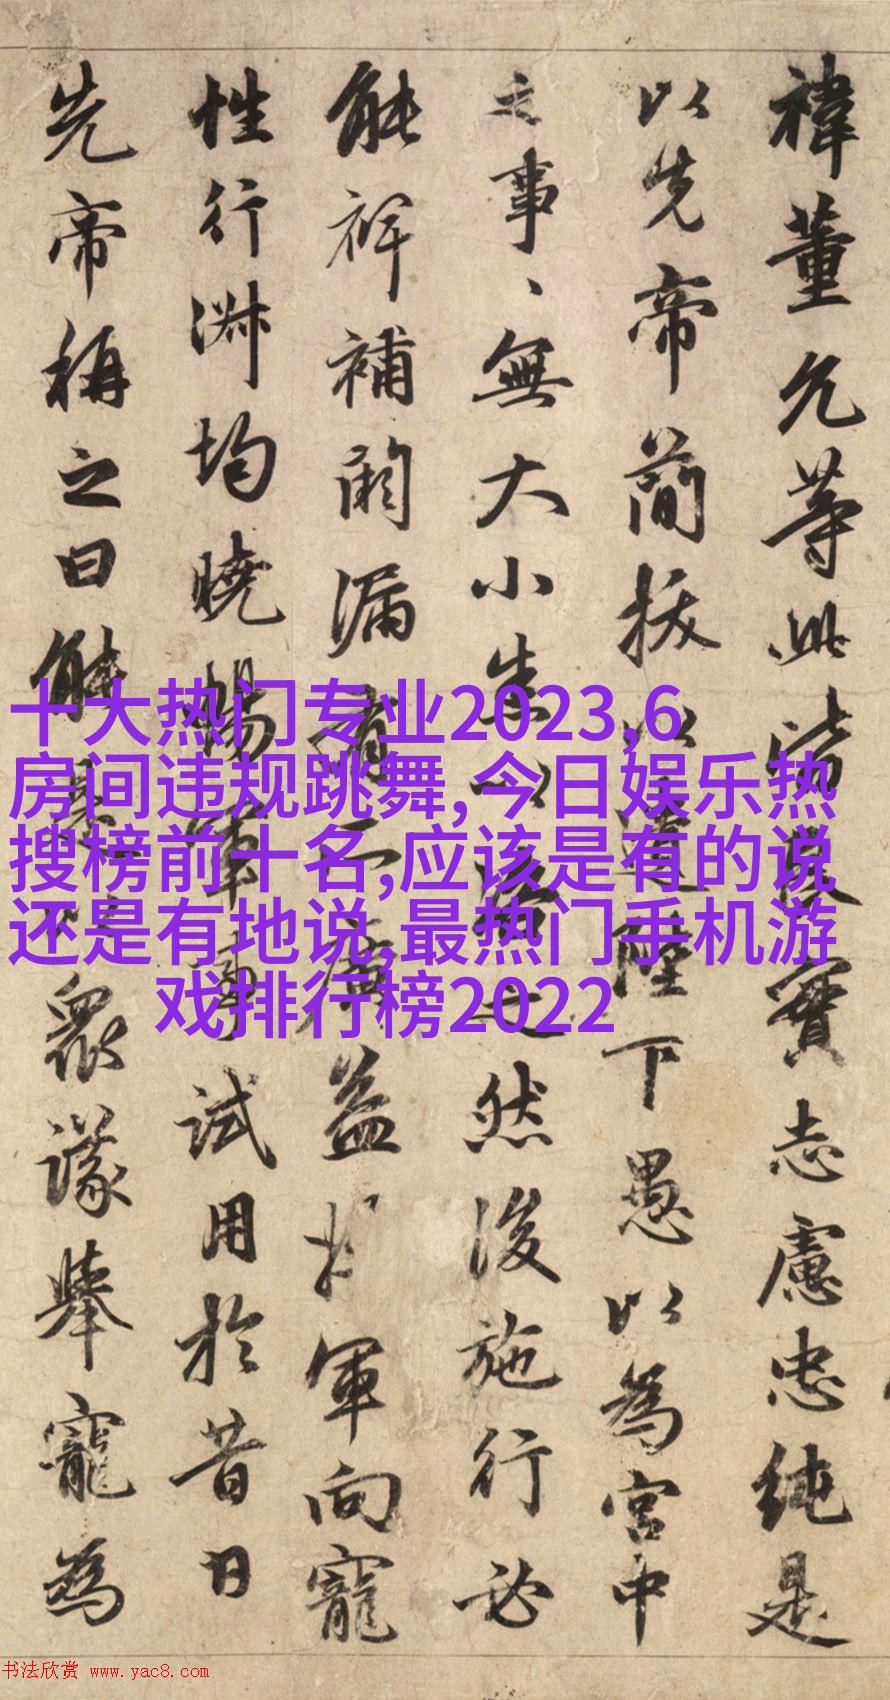 禕董允等此皆良實志慮忠純是
以先帝簡拔以遺陛下愚以為宮中
之事、無大小悉以咨之然後施行必
能裨補闕漏有所廣益將軍向寵
性行淋均曉暢軍事試用於昔日
先帝稱之曰能是以衆議舉寵為
十大热门专业2023,6
房间违规跳舞,今日娱乐热
搜榜前十名,应该是有的说
还是有地说,最热门手机游
戏排行榜2022
书法欣赏 www.yac8.com